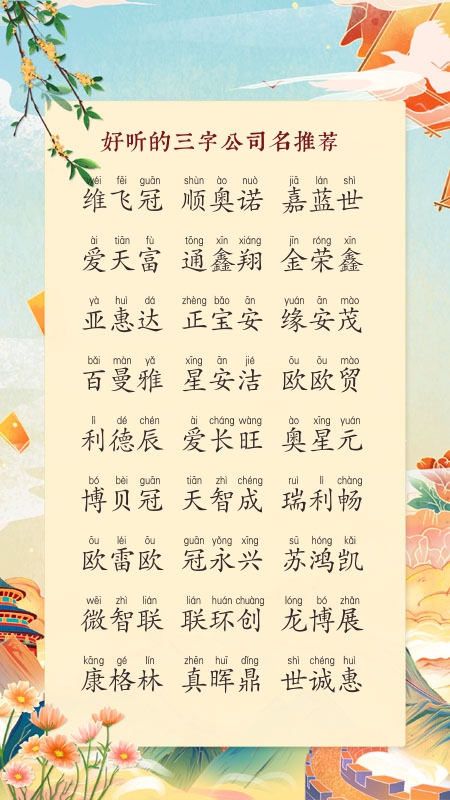 好听的三字公司名推荐
wéi fēi guān shùn ào nuò jiā lán shì
维飞冠 顺奥诺 嘉蓝世
ài tiān fù tōng xīn xiáng jīn róng xīn
爱天富 通鑫翔 金荣鑫
yà huì dá zhèng bǎo ān yuán ān mào
亚惠达 正宝安 缘安茂
bǎi màn yǎ xīng ān jié ōu ōu mào
百曼雅 星安洁 欧欧贸
lì dé chén ài cháng wàng ào xīng yuán
利德辰 爱长旺 奥星元
bó bèi guān tiān zhì chéng ruì lì chàng
博贝冠 天智成 瑞利畅
ōu léi ōu guān yǒng xīng sū hóng kǎi
欧雷欧 冠永兴 苏鸿凯
wēi zhì lián lián huán chuàng lóng bó zhǎn
微智联 联环创 龙博展
kāng gé lín zhēn huī dǐng shì chéng huì
康格林 真晖鼎 世诚惠